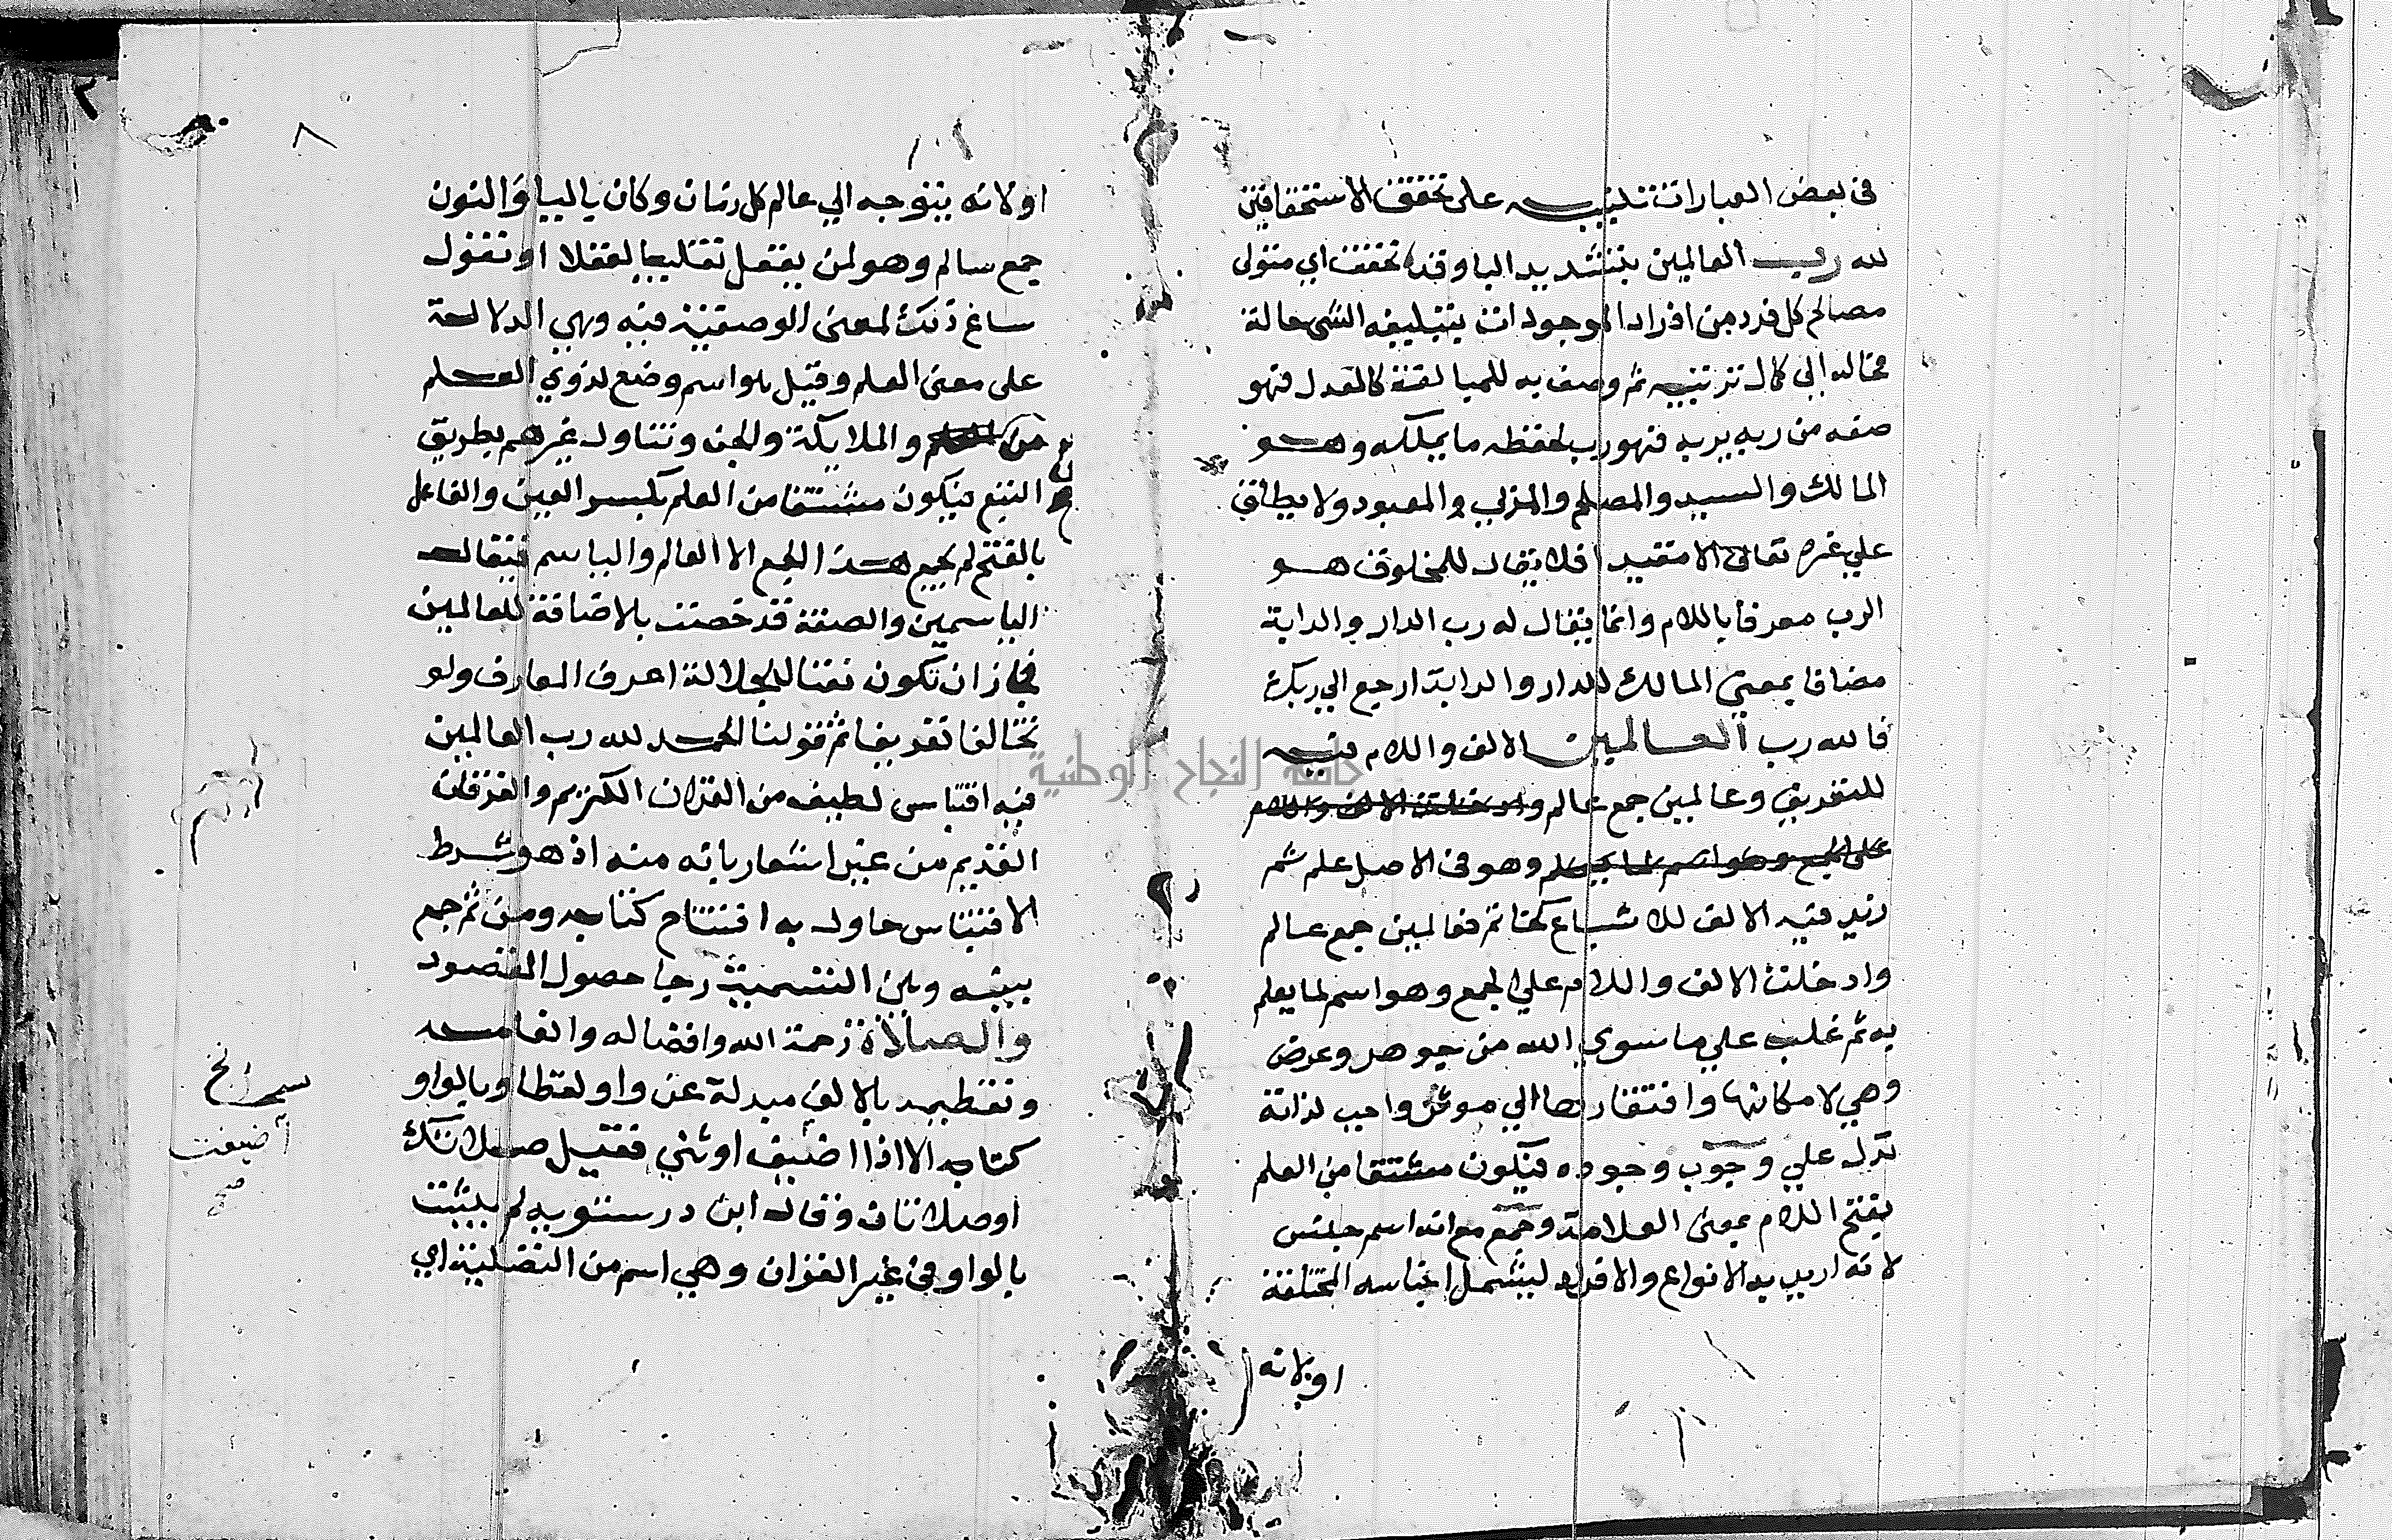 في بعض العبارات تنبيه على تحقق الاستحقاقين
لله رب العالمين بتشديد البا وقد تخفف اي متولى
مصالح كل فرد من افراد الموجودات بتبليغه الشى حالة
فحالة الي كمال تربيته ثم وصف به للمبالغة كالعدل فهو
صفه من ربه يربه فهو رب لحفظه ما يملكه وهو
المالك والسيد والمصلح والمزلي والمعبود ولا يطلق
علي غيره تعالى الا مقيدا فلا يقال للمخلوق هو
الرب معرفا باللام وانما يقال له رب الدار والدابة
مضافا بمعنى المالك للدار والدابة ارجع الي ربك
فالله رب العالمين الالف واللام فيه
للتعريف وعالمين جمع عالم وادخلت الالف واللام
على الجمع وهو اسم لما يعلم وهو في الاصل علم ثم
زيد فيه الالف للاشباع كخاتم فعالمين جمع عالم
وادخلت الالف واللام علي الجمع وهو اسم لما يعلم
به ثم غلب علي ما سوي الله من جوهر وعرض
وهي لامكانها وافتقارها الي موثر واجب لذاته
تدل علي وجوب وجوده فيكون مشتقا من العلم
بفتح اللام بمعنى العلامة وجمع مع انه اسم جنس
لانه اريد به الانواع والافراد ليشمل اجناسه المختلفة
او لانه
٨
او لانه يتوجه الي عالم كل زمان وكان باليا والنون
جمع سالم وهو لمن يعقل تغليبا للعقلا او تقول
ساغ ذلك لمعنى الوصفية فيه وهي الدلالة
على معنى العلم وقيل هو اسم وضع لذوي العلم
من والملايكة والجن وتناوله غيرهم بطريق
التبع فيكون مشتقا من العلم بكسر العين والفاعل
بالفتح لم يجمع هذا الجمع الا العالم والياسم فيقال
الياسمين والصفة قد خصت بالاضافة للعالمين
فجاز ان تكون نعتا للجلالة اعرف المعارف ولو
تخالفا تعريفا ثم قولنا الحمد لله رب العالمين
فيه اقتباس لطيف من القران الكريم والفرقان
القديم من غير اشعار بانه منه اذ هو شرط
الاقتباس حاول به افتتاح كتابه ومن ثم جمع
بينه وبين التسمية رجا حصول المقصود
والصلاة رحمة الله وافضاله وانعامه
وتعظيمه بالالف مبدلة عن واو لفظا وبالواو
كتابه الا اذا اضيف او ثني فقيل صلاتك
او صلاتان وقال ابن درستويه لم يثبت
بالواو في غير القران وهي اسم من التصلية اي
اضيفت
صح
جامعة النجاح الوطنية